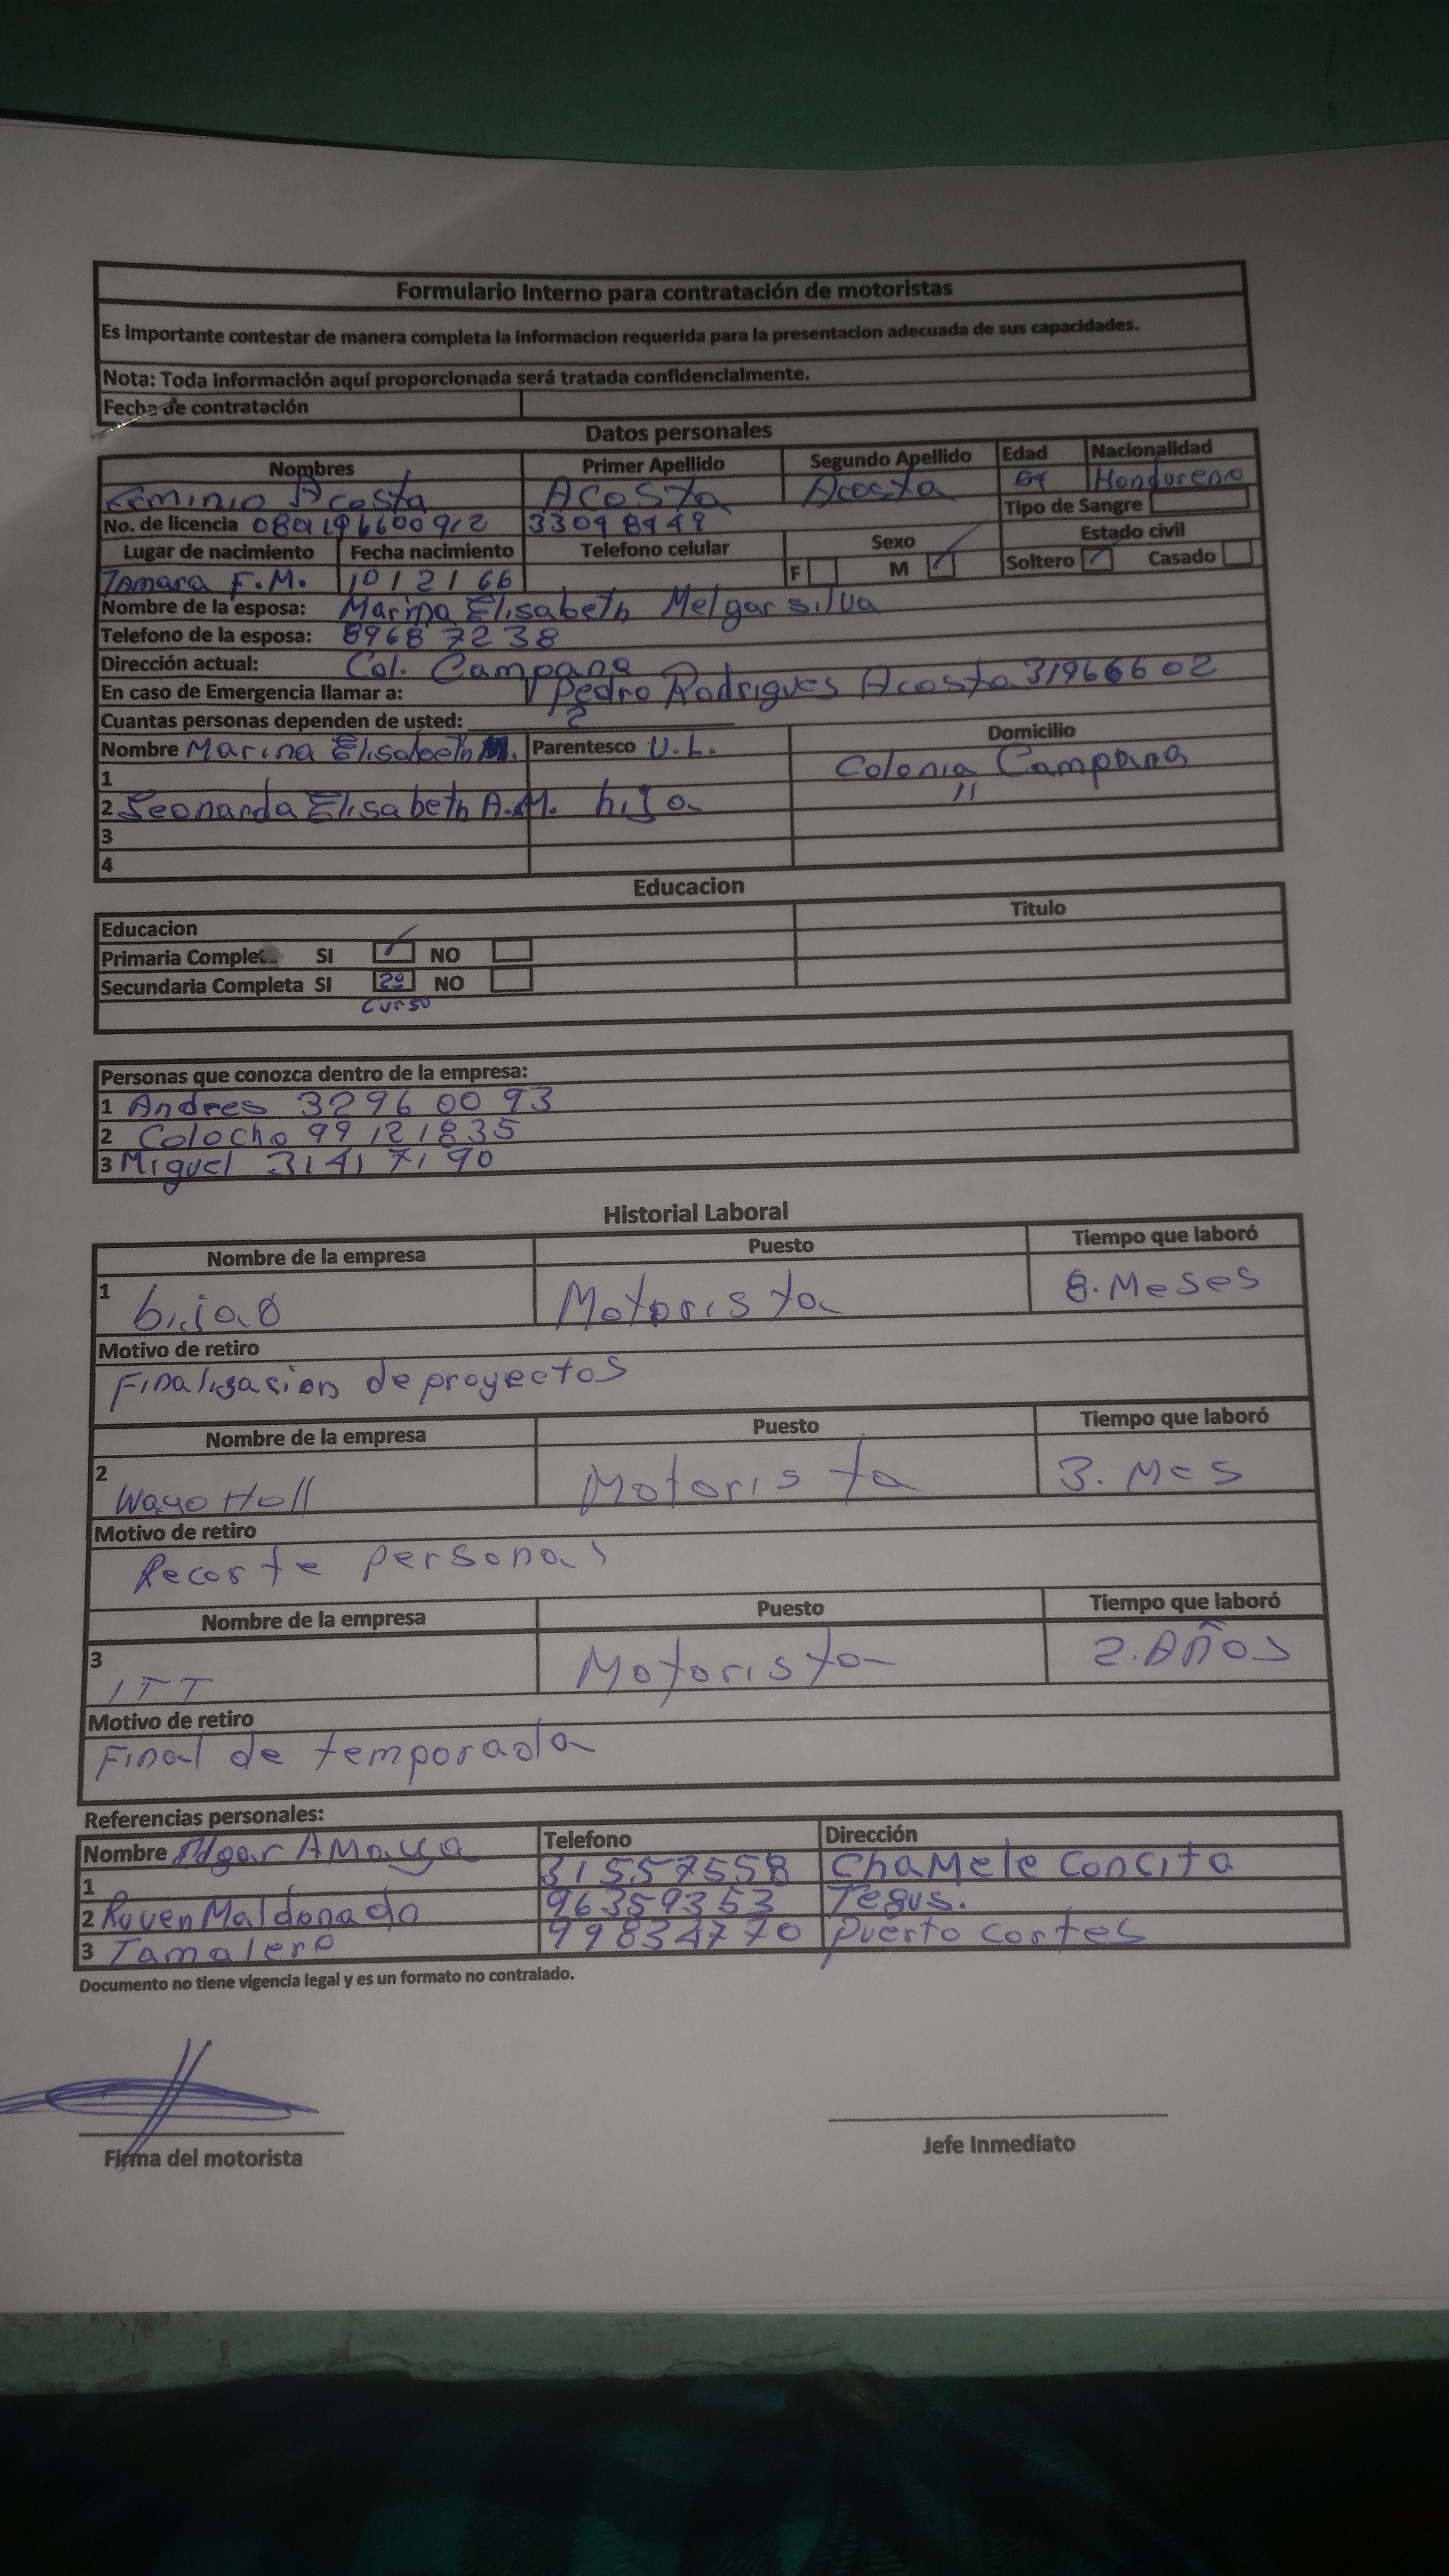 Formulario Interno para contratación de motoristas
Es importante contestar de manera completa la informacion requerida para la presentacion adecuada de sus capacidades.
Nota: Toda información aquí proporcionada será tratada confidencialmente.
Fecha de contratación
Datos personales
Nombres Primer Apellido Segundo Apellido Edad Nacionalidad
Erminio Acosta Acosta Acosta Hondureño
No. de licencia 0801196600912 33098949 Tipo de Sangre
Lugar de nacimiento Fecha nacimiento Telefono celular Sexo Estado civil
Tamara F.M. 10 12 1 66 F M Soltero Casado
Nombre de la esposa: Marina Elisabeth Melgar silva
Telefono de la esposa: 89687238
Dirección actual: Col. Campana
En caso de Emergencia llamar a: Pedro Rodrigues Acosta 31966602
Cuantas personas dependen de usted: 2
Nombre Marina Elisabeth M. Parentesco U.L. Domicilio
1 Colonia Campana
2 Leonarda Elisabeth A.M. hija 11
3
4
Educacion
Educacion Titulo
Primaria Completa SI NO
Secundaria Completa SI 2º NO
curso
Personas que conozca dentro de la empresa:
1 Andres 32960093
2 Colocho 99121835
3 Miguel 31417190
Historial Laboral
Nombre de la empresa Puesto Tiempo que laboró
1 bijao Motorista 8. Meses
Motivo de retiro
Finalisacion de proyectos
Nombre de la empresa Puesto Tiempo que laboró
2 Wayo Holl Motorista 3. Mes
Motivo de retiro
Recorte personal
Nombre de la empresa Puesto Tiempo que laboró
3 ITT Motorista 2. Años
Motivo de retiro
Final de temporada
Referencias personales:
Nombre Edgar AMaya Telefono Dirección
1 31557558 ChaMeleConcita
2 Ruven Maldonado 96359353 Tegus.
3 Tamalero 99834770 Puerto cortes
Documento no tiene vigencia legal y es un formato no contralado.
Firma del motorista Jefe Inmediato